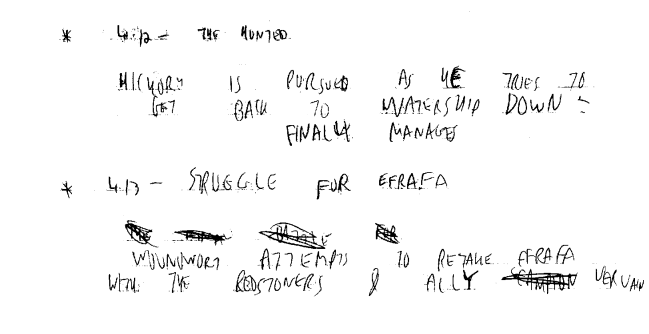 * 4.12 - THE HUNTED
HICKORY IS PURSUED AS HE TRIES TO
GET BACK TO WATERSHIP DOWN &
FINALLY MANAGES
* 4.13 - STRUGGLE FOR EFRAFA
WOUNDWORT ATTEMPTS TO RETAKE EFRAFA
WITH THE REDSTONERS & ALLY VERVAIN